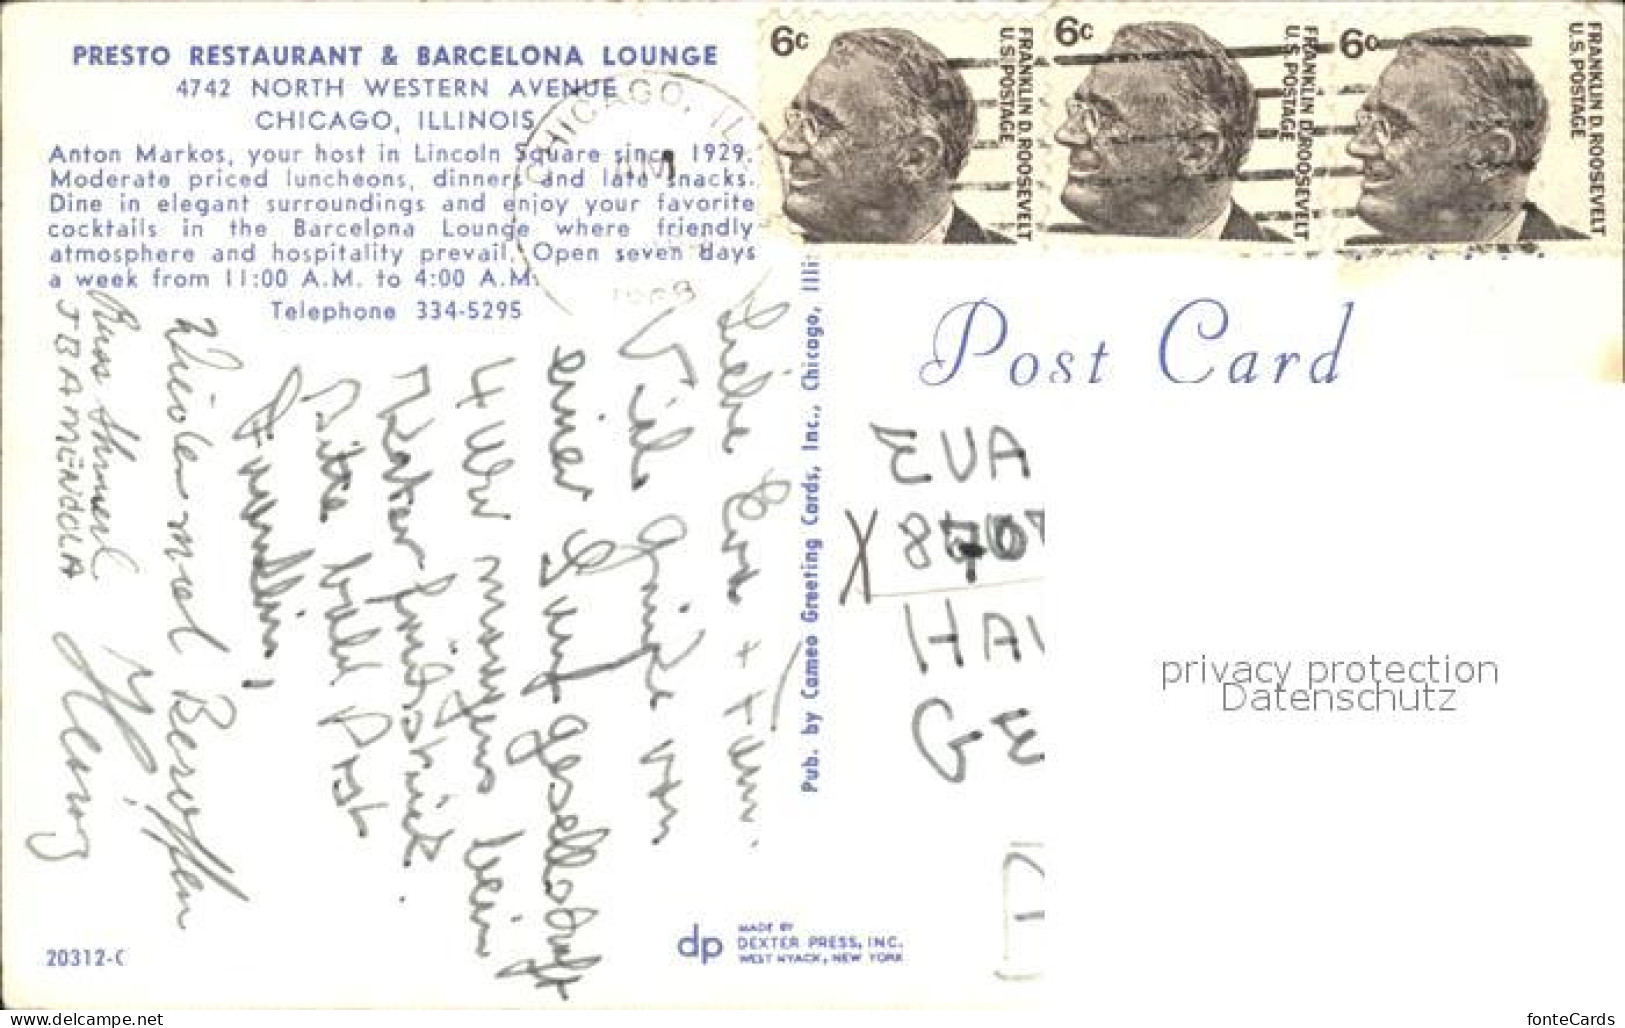 PRESTO RESTAURANT & BARCELONA LOUNGE
4742 NORTH WESTERN AVENUE
CHICAGO, ILLINOIS
Anton Markos, your host in Lincoln Square since 1929.
Moderate priced luncheons, dinners and late snacks.
Dine in elegant surroundings and enjoy your favorite
cocktails in the Barcelona Lounge where friendly
atmosphere and hospitality prevail. Open seven days
a week from 11:00 A.M. to 4:00 A.M.
Telephone 334-5295
CHICAGO, IL
1968
6c
FRANKLIN D. ROOSEVELT
U.S. POSTAGE
6c
FRANKLIN D. ROOSEVELT
U.S. POSTAGE
6c
FRANKLIN D. ROOSEVELT
U.S. POSTAGE
Post Card
Liebe + Fam.
Viele Grüße von
einer Gesellschaft
4 Uhr morgens beim
Katerfrühstück.
Bitte bald Post
Wieder mal Besoffen
JB AMENDOLA
Pub. by Cameo Greeting Cards, Inc., Chicago, Illi
EVA
X
HA
GE
privacy protection
Datenschutz
20312-C
dp
MADE BY
DEXTER PRESS, INC.
WEST NYACK, NEW YORK
www.delcampe.net
fonteCards